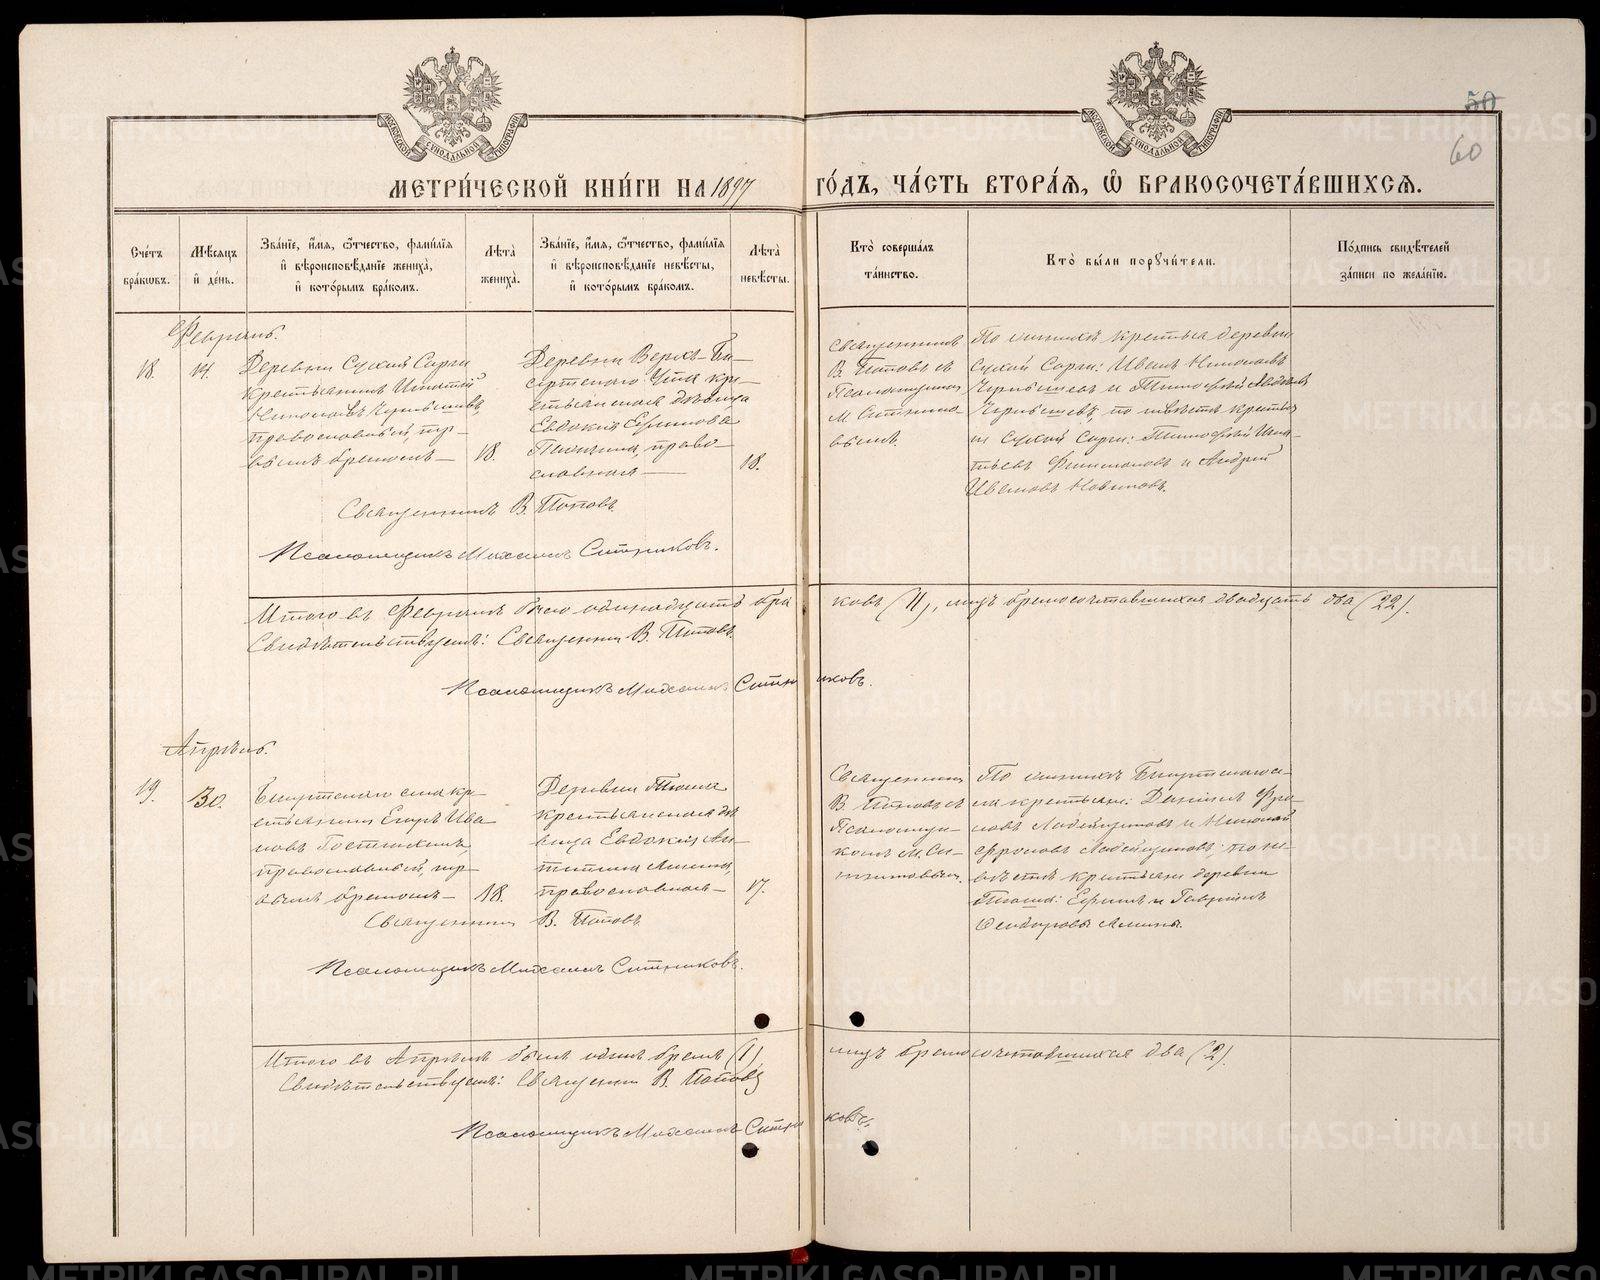 50
60
МЕТРИ́ЧЕСКОЙ КНИ́ГИ НА 1897 ГО́ДЪ, ЧА́СТЬ ВТОРА́Я, Ѽ БРАКОСОЧЕТА́ВШИХСЯ.
Сче́тъ бра́кѡвъ.
Мѣ́сяцъ и҆ де́нь.
Зва́нїе, и҆́мя, ѻ҆́тчество, фами́лїя и҆ вѣроисповѣ́данїе жениха̀, и҆ кото́рымъ бра́комъ.
Лѣ́та̀ жениха̀.
Зва́нїе, и҆́мя, ѻ҆́тчество, фами́лїя и҆ вѣроисповѣ́данїе невѣ́сты, и҆ кото́рымъ бра́комъ.
Лѣ́та̀ невѣ́сты.
Кто̀ соверша́лъ та́инство.
Кто̀ бы́ли порꙋчи́тели.
По́дпись свидѣ́телей за́писи по жела́нїю.
Февраль.
18.
14.
Деревни Сухой Сарги
крестьянинъ Игнатій
Николаевъ Чернышевъ,
православный, пер-
вымъ бракомъ
18.
Деревни Верхъ-Би-
сертскаго Утка кре-
стьянская дѣвица
Евдокія
православная
18.
Священникъ
В. Поповъ съ
Псаломщикомъ
М. Ситнико-
вымъ.
По женихѣ крестьяне деревни
Сухой Сарги: Иванъ Николаевъ
Чернышевъ и Тимофей
Чернышевъ, по невѣстѣ крестьяне
Сухой Сарги: Тимофей Игна-
тьевъ Филимоновъ и Андрей
Ивановъ Новиковъ.
Священникъ В. Поповъ
Псаломщикъ Михаилъ Ситниковъ.
Итого въ Февралѣ было одинадцать браковъ (11), лицъ бракосочетавшихся двадцать два (22).
Свидѣтельствуемъ: Священникъ В. Поповъ
Псаломщикъ Михаилъ Ситниковъ.
Апрѣль.
19.
30.
Бисертскаго села кре-
стьянинъ Егоръ Ива-
новъ
православный, пер-
вымъ бракомъ
18.
Деревни
крестьянская дѣ-
вица Евдокія Ан-
православная
17.
Священникъ
В. Поповъ съ
Псаломщи-
комъ М. Си-
тниковымъ.
По женихѣ Бисертскаго се-
ла крестьяне: Даніилъ Фро-
ловъ и Николай
Фроловъ по не-
вѣстѣ крестьяне деревни
Ефимъ и Гавріилъ
Ѳеодоровы
Священникъ В. Поповъ
Псаломщикъ Михаилъ Ситниковъ.
Итого въ Апрѣлѣ былъ одинъ бракъ (1), лицъ бракосочетавшихся два (2).
Свидѣтельствуемъ: Священникъ В. Поповъ
Псаломщикъ Михаилъ Ситниковъ.
METRIKI.GASO-URAL.RU